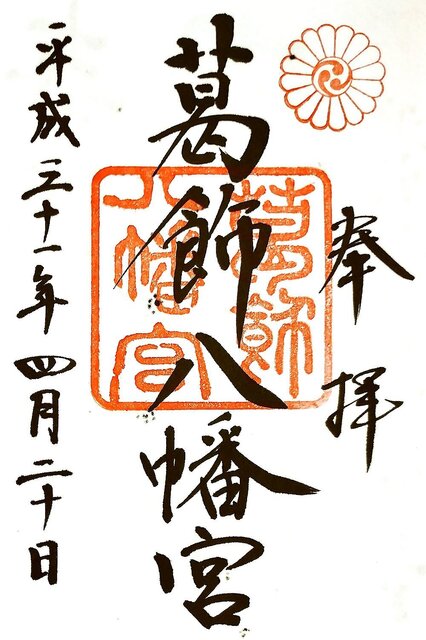 奉拝
葛飾八幡宮
葛飾
八幡宮
平成三十一年四月二十日